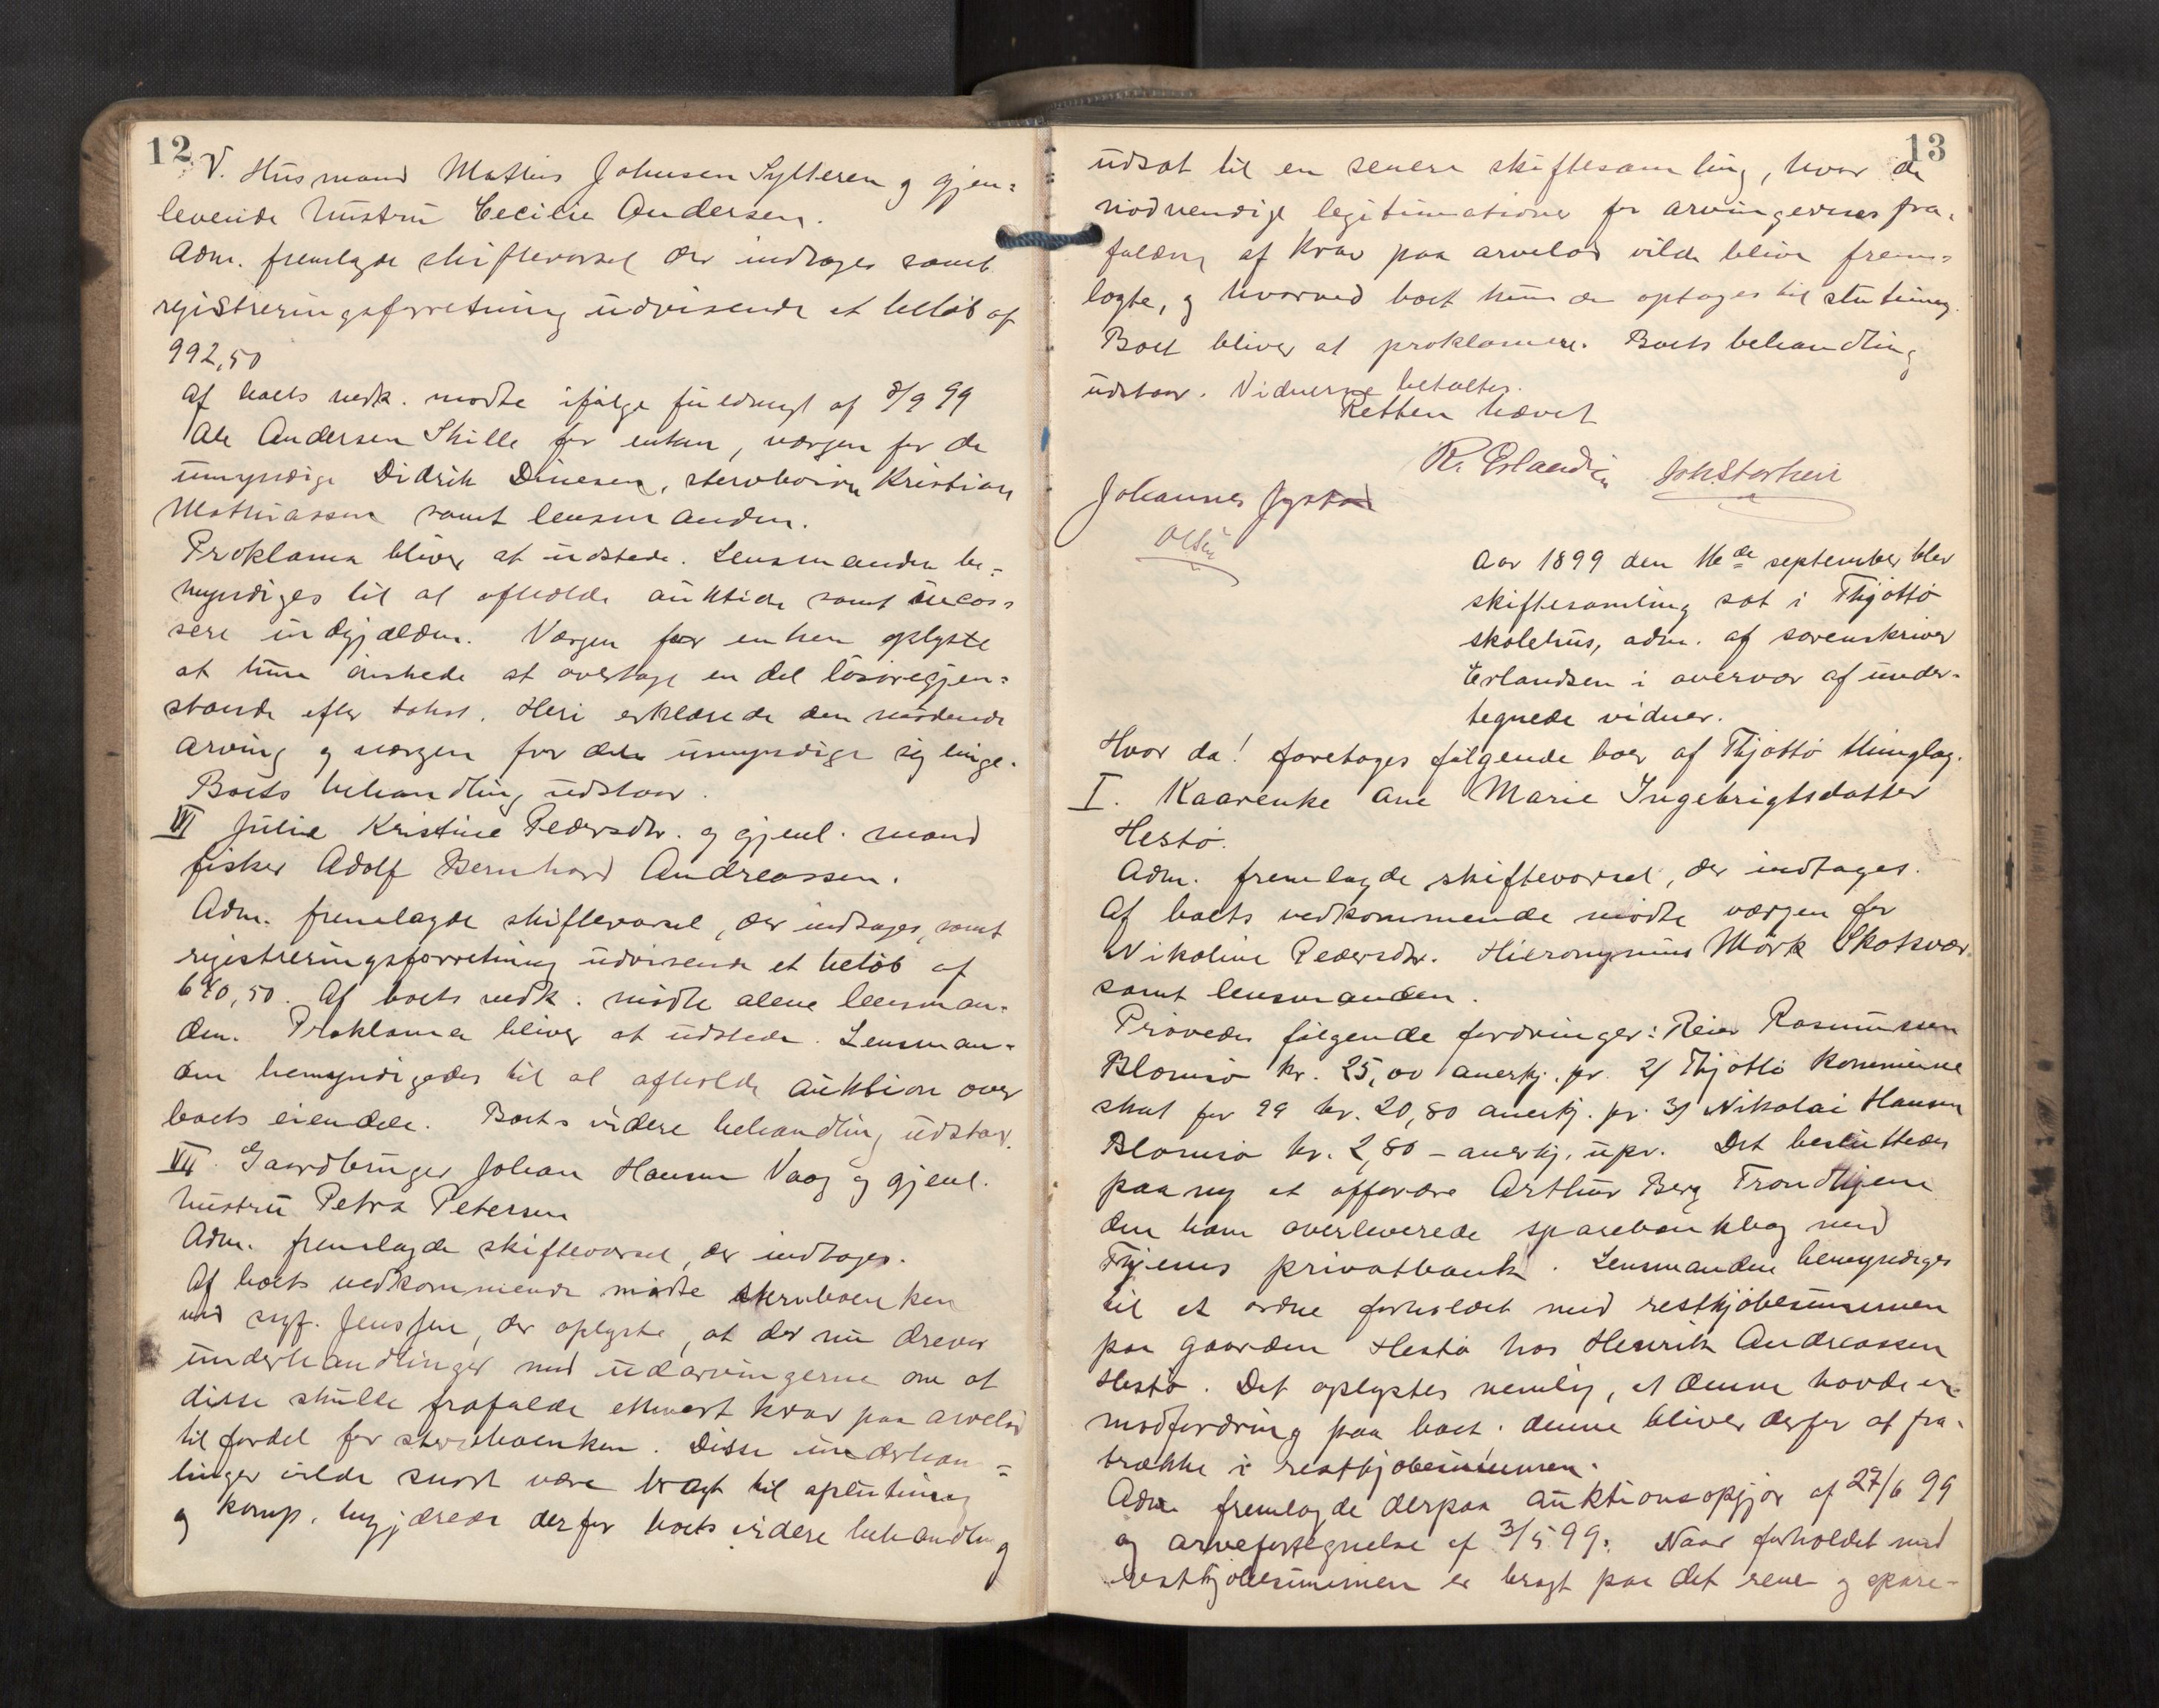 12
V. Husmand Mathis Johnsen Sylteren og gjen=
levende hustru Cecilie Andersen.
Adm. fremlagde skiftevarsel der indtages samt
registreringsforretning udvisende et beløb af
992,50
Af boets vedk. mødte ifølge fuldmagt af 8/9 99
Ole Andersen Skille for enken, værgen for de
umyndige Didrik Dinesen, stervboson Kristian
Mathiassen samt lensmanden.
Proklama bliver at udstede. Lensmanden be=
myndiges til at afholde auktion samt incas=
sere indgjælden. Værgen for enken oplyste
at hun ønskede at overtage en del løsøregjen=
stande efter takst. Heri erklærede den mødende
arving og værgen for den umyndige sig enige.
Boets behandling udstaar.
VI Julie Kristine Pedersdtr. og gjenl. mand
fisker Adolf Bernhard Andreassen.
Adm. fremlagde skiftevarsel, der indtages, samt
registreringsforretning udvisende et beløb af
640,50. Af boets vedk. mødte alene lensman=
den. Proklama bliver at udstede. Lensman=
den bemyndigedes til at afholde auktion over
boets eiendele. Boets videre behandling udstaar.
VII. Gaardbruger Johan Hansen Vaag og gjenl.
hustru Petra Petersen
Adm. fremlagde skiftevarsel, der indtages.
Af boets vedkommende mødte stervboenken
med sagf. Jenssen, der oplyste, at der nu drever
underhandlinger med udarvingerne om at
disse skulde frafalde ethvert krav paa arvelod
til fordel for stervboenken. Disse underhan=
linger vilde snart være bragt til afslutning
og komp. begjærede derfor boets videre behandling
13
udsat til en senere skiftesamling, hvor de
nødvendige legitimationer for arvingernes fra=
falden af krav paa arvelod vilde blive frem=
lagte, og hvorved boet kunde optages til slutning.
Boet bliver at proklamere. Boets behandling
udstaar. Vidnerne betaltes.
Retten hævet
R. Erlandsen
Johannes
Olsen
Aar 1899 den 16de september blev
skiftesamling sat i Thjøttø
skolehus, adm. af sorenskriver
Erlandsen i overvær af under=
tegnede vidner.
Hvor da! foretages følgende boer af Thjøttø thinglag.
I. Kaarenke Ane Marie Ingebrigtsdatter
Hestø.
Adm. fremlagde skiftevarsel, der indtages.
Af boets vedkommende mødte værgen for
Nikoline Pedersdtr. Hieronymus Mørk Skotsvær
samt lensmanden.
Prøvedes følgende fordringer: Reier Rasmussen
Blomsø kr. 25,00 anerkj. pr. 2) Thjøttø kommune
skat for 99 kr. 20,80 anerkj. pr. 3) Nikolai Hansen
Blomsø kr. 2,80 – anerkj. upr. Det besluttedes
paa ny at affordre Arthur Berg Trondhjem
den ham overleverede sparebankbog med
Thjems privatbank. Lensmanden bemyndiges
til at ordne forholdet med restkjøbesummen
paa gaarden Hestø hos Henrik Andreassen
Hestø. Det oplystes nemlig, at denne havde en
modfordring paa boet. denne bliver derfor at fra=
trække i restkjøbesummen.
Adm. fremlagde derpaa auktionsopgjør af 27/6 99
og arvefortegnelse af 3/5 99. Naar forholdet med
restkjøbesummen er bragt paa det rene og spare=